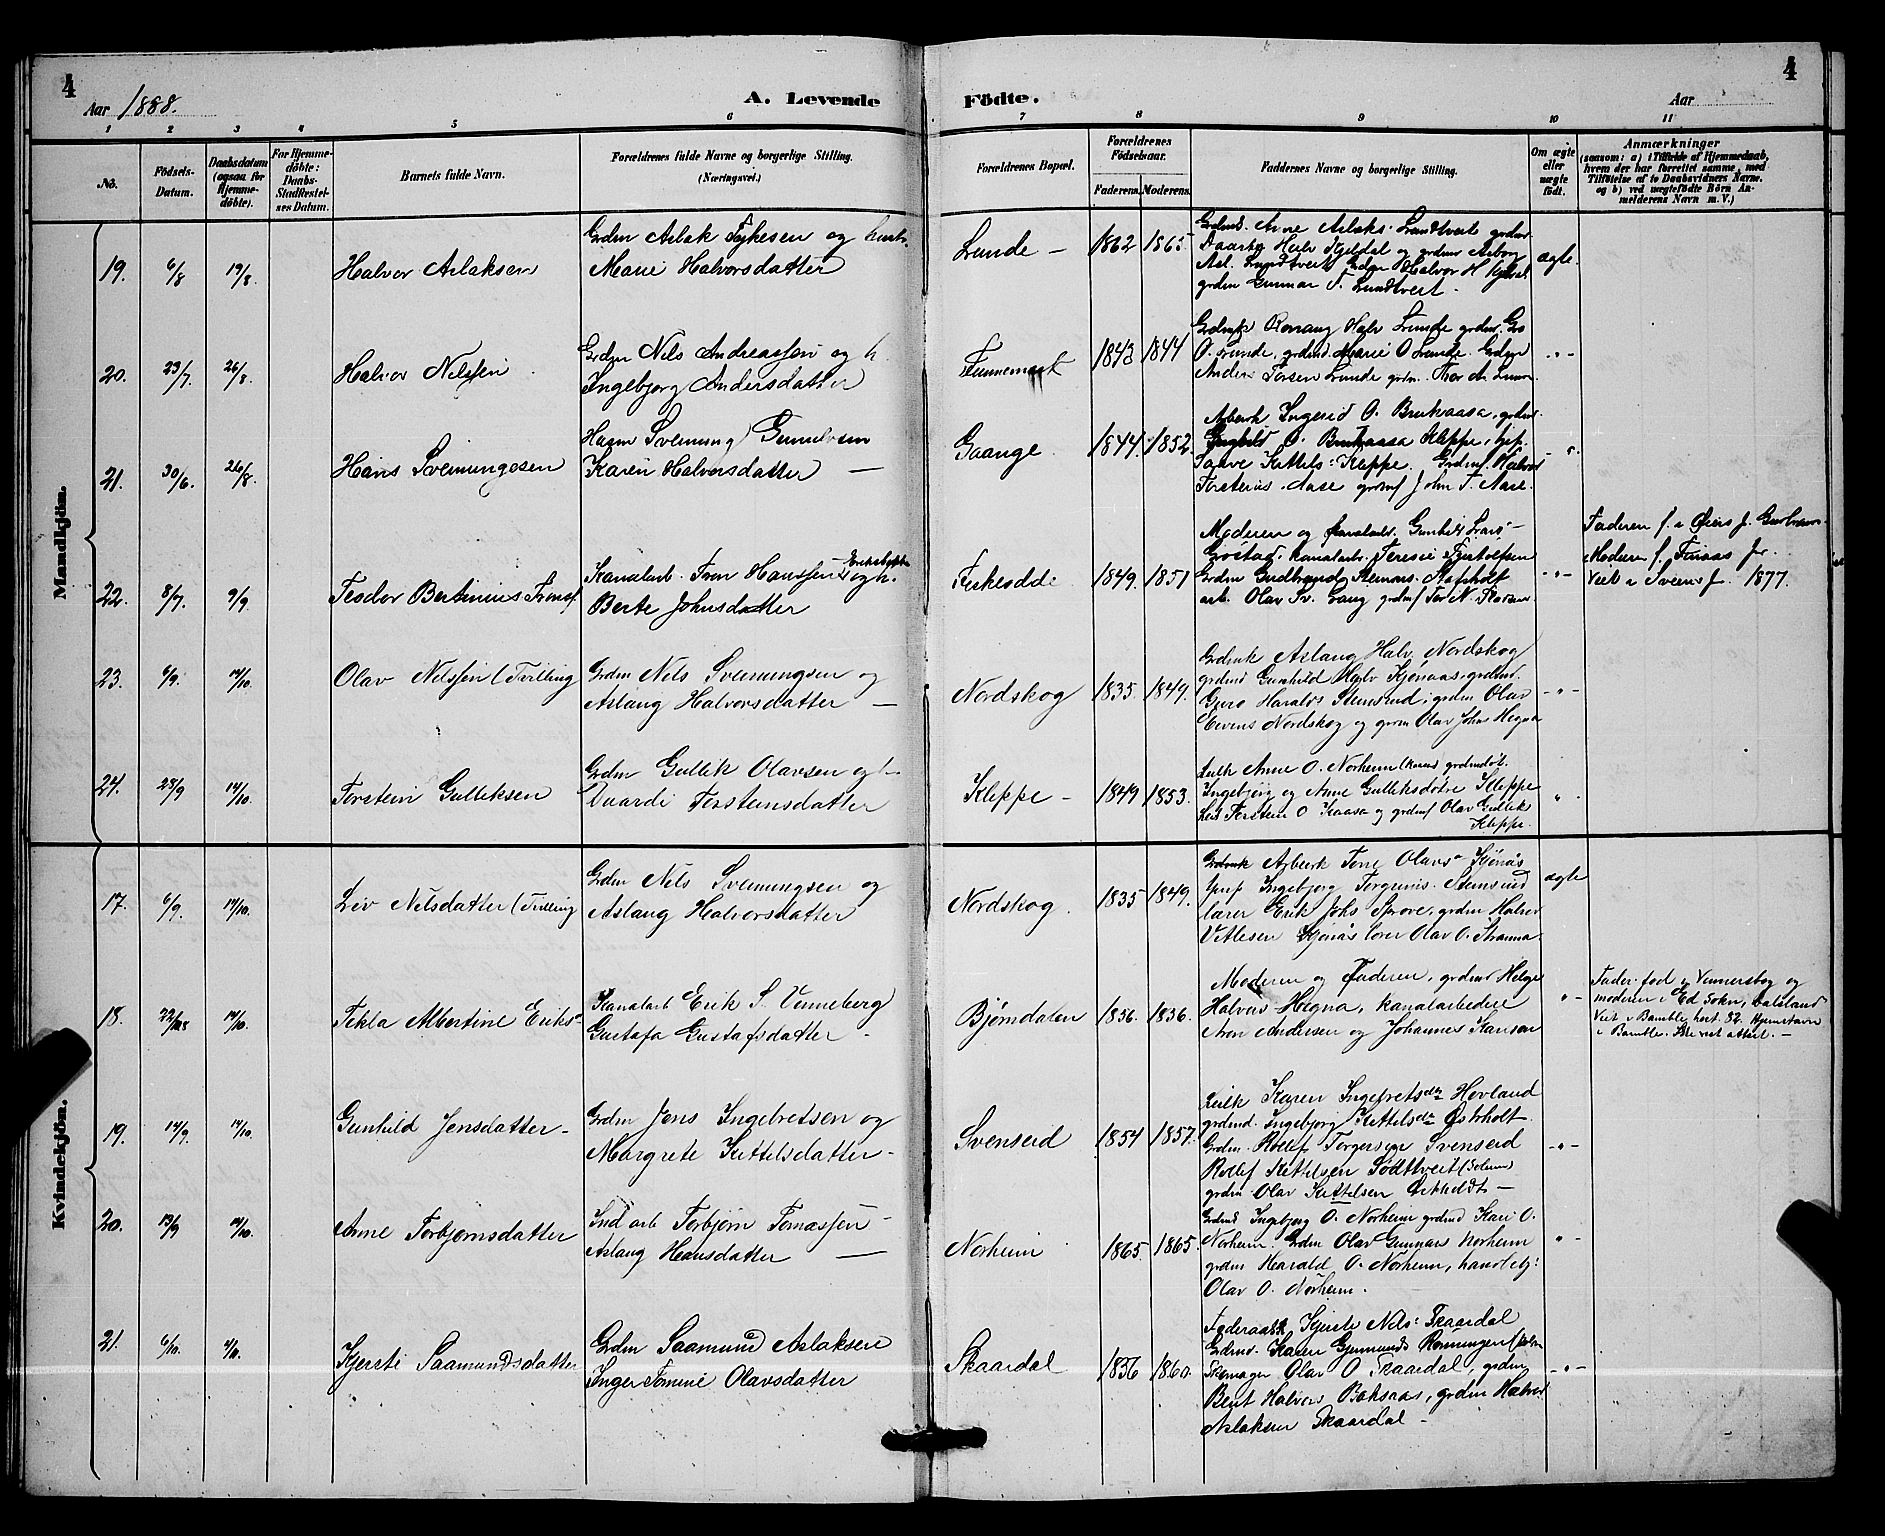 4
Aar 1888.
A. Levende
Födte.
Aar
4
1 2 3 4 5 6 7 8 9 10 11
No.
Födsels-
Datum.
Daabsdatum
(ogsaa for
Hjemme-
döbte).
For Hjemme-
döbte:
Daabs-
Stadfæstel-
ses Datum.
Barnets fulde Navn.
Forældrenes fulde Navne og borgerlige Stilling.
(Næringsvei.)
Forældrenes Bopæl.
Forældrenes
Födselsaar.
Faderens. Moderens.
Faddernes Navne og borgerlige Stilling.
Om ægte
eller
uægte
födt.
Anmærkninger
(saasom: a) i Tilfælde af Hjemmedaab,
hvem der har forrettet samme, med
Tilföielse af to Daabsvidners Navne.
og b) ved uægtefödte Börn An-
melderens Navn m. V.)
Mandkjön.
19. 6/8 19/8. Halvor Aslaksen
Grdm Aslak Tykesen og hustr.
Marie Halvorsdatter
Lunde - 1862 1865
Aarne Aslaks. Lundtveit grdm.
Halv Kjeldal og grdm Aslaug
Asl. Lundtveit Grdm Halvor H.
grdm Gunnar T. Lundtveit -
ægte.
20. 23/7. 26/8. Halvor Nilssen
Grdm Nils Andreassen og h.
Ingebjorg Andersdatter
1843 1844
Ronaug Halv Lunde grdmd. Gro
O. Lunde, grdmd. Marie O Lunde. Grdm
Anders Torsen Lunde grdm. Thor A. Lunde
-"-
21. 30/6. 26/8. Hans Sveinungesen
Husm Sveinung Gunnulvsen
Karen Halvorsdatter -
Gaange. 1844. 1852.
Ingerid O. Brukaasa, grdmd.
O. Brukaasa Kleppe, Gif.
Kittels: Kleppe. Grdm Halvor
Torsteins. Aase grdm John T. Aase.
22. 8/7. 9/9. Teodor Bertinius Ivarsf.
Kanalarb. Hanssen og h.
Berte Johnsdatter
1849. 1851
Moderen og Kanalarb. Gunhild Lars-
kanalarb. Teresie
Grdm Gudbrand Steinars.
arb. Olav Sv. grdm Tor N.
-"-
Faderen f. i
Moderen f.
Veit i 1877.
23. 6/9. 14/10. Olav Nilssen (Tvilling
Grdm Nils Sveinungsen og
Aslaug Halvorsdatter -
Nordskog 1835. 1849.
Aslaug Halv. Nordskog
grdmd Gunhild Halv Kjønaas. grdm.
Guro Haralds Stensrud, grdm Olav
Evens Nordskog og grdm Olav Johns Hegna
-"-
24. 28/9 14/10. Torstein Gulliksen
Grdm Gullik Olavsen og
Duardi Torsteinsdatter
Kleppe - 1849 1853.
Anne O. Norheim
Ingebjørg og Anne Gulliksdøtre Kleppe
Torstein O Kaasa og grdm Olav Gullik
Kleppe.
"
Kvindekjön.
17. 6/9. 14/10. Liv Nilsdatter (Tvilling
Grdm Nils Sveinungsen og
Aslaug Halvorsdatter
Nordskog. 1835 1849.
Tone Olavs- Kjønås
Ingebjorg Torgrims. Stensrud
lærer Erik Johs Sprove, grdm Halvor
Vetlesen Kjønås lærer Olav O. Stranna
ægte
18. 14/10. Tekla Albertine Eriks-
Kanalarb Erik S. Venneberg
Gustafa Gustafsdatter -
Bjørndalen 1836. 1836.
Moderen og Faderen, grdmd Helge
Halvor Hegna, kanalarbeder
Aron Andersen og Johannes Karlson
" -
Fader fød i Vennersbog og
moderen i Ed Sokn, Dalsland
Viet i Bamble høst 82. Hjemstavn
i Bamble. Ikke vist attest. -
19. 14/9. 14/10. Gunhild Jensdatter -
Grdm Jens Ingebretsen og
Margrete Kittelsdatter -
Svenserd 1854 1857.
Karen Ingebretsdtr Hovland
grdmd. Ingebjorg Kittelsdtr Østrholt
Grdm. Rollef Torgersen Svenserd
Rollef Kittelsen Södtveit (Solum)
grdm Olav Kittelsen -
-"-
20. 13/9 14/10. Anne Torbjornsdatter
Ind arb Torbjørn Tomassen -
Aslaug Hansdatter -
Norheim 1865. 1865.
Grdmd Ingebjorg O. Norheim grdmd Kari O.
Norheim. Grdm Olav Gunnars Norheim
grdm Harald O. Norheim, handelsbj:
Olav O. Norheim.
" -
21. 6/10. 4/11. Kjersti Saamundsdatter
Grdm Saamund Aslaksen
Inger Tomine Olavsdatter
Skaardal 1836 1860.
Kjerste Nils: Skaardal
Grdmd. Karen Gjermunds Rønningen
Skomager Olav O Skaardal, grdm
Bent Halvors Baksaas, grdm Halvor
Aslaksen Skaardal -
-"-